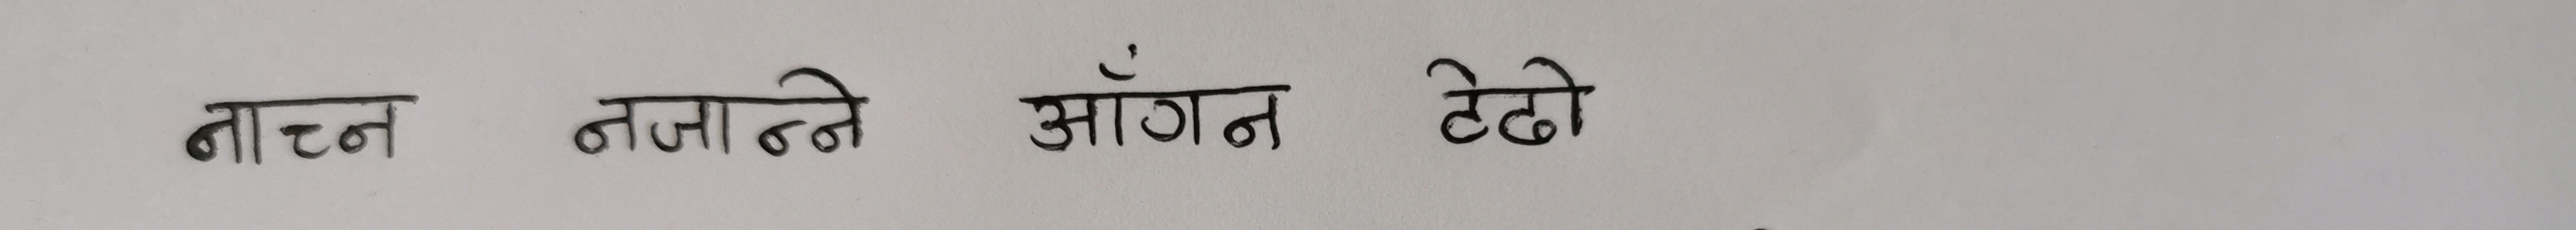 नाच्न नजान्ने आँगन टेढो